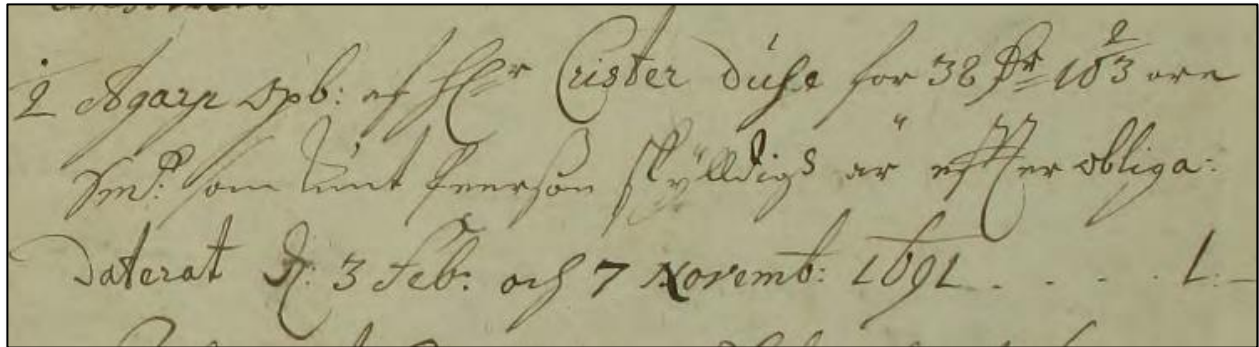 2 Agarp Opb: af H:r Crister Duse for 38 Dr 18 2/3 ore
Sm: som Iverson skylldigs är effter obliga:
Daterat d: 3 Feb: och 7 Novemb: 1691 . . . . 1:–